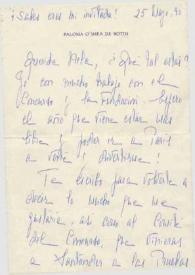 ¡Sabes eres mi invitada! 25 Mayo, 90
PALOMA O'SHEA DE BOTIN
Querida ¿que tal estás?
Yo con mucho trabajo con el
Concurso y la Fundación. Espero
el año que viene estar más
libre y poder ir a Paris
a verte y
Te escribo para volverte a
decir lo mucho que me
gustaria, asi como al Comité
del Concurso, que vinieras
a Santander a las Pruebas